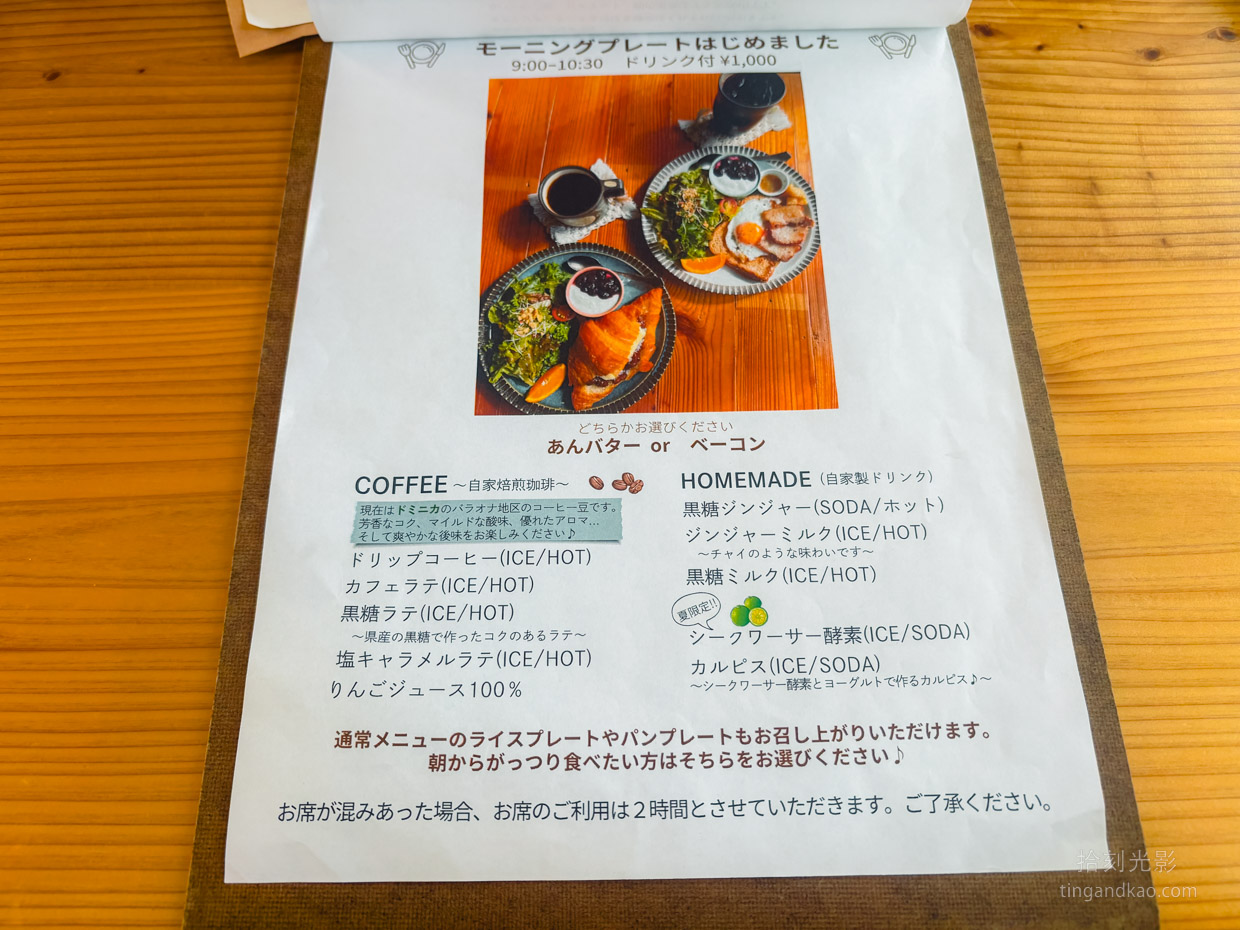 モーニングプレートはじめました
9:00-10:30 ドリンク付 ¥1,000
どちらかお選びください
あんバター or ベーコン
COFFEE ～自家焙煎珈琲～
現在はドミニカのバラオナ地区のコーヒー豆です。
芳香なコク、マイルドな酸味、優れたアロマ…
そして爽やかな後味をお楽しみください♪
ドリップコーヒー(ICE/HOT)
カフェラテ(ICE/HOT)
黒糖ラテ(ICE/HOT)
～県産の黒糖で作ったコクのあるラテ～
塩キャラメルラテ(ICE/HOT)
りんごジュース100%
HOMEMADE (自家製ドリンク)
黒糖ジンジャー(SODA/ホット)
ジンジャーミルク(ICE/HOT)
～チャイのような味わいです～
黒糖ミルク(ICE/HOT)
夏限定!!
シークワーサー酵素(ICE/SODA)
カルピス(ICE/SODA)
～シークワーサー酵素とヨーグルトで作るカルピス♪～
通常メニューのライスプレートやパンプレートもお召し上がりいただけます。
朝からがっつり食べたい方はそちらをお選びください♪
お席が混みあった場合、お席のご利用は２時間とさせていただきます。ご了承ください。
拾刻光影
tingandkao.com